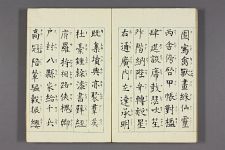 圖寫禽獸畫綵仙靈
丙舍傍啓甲帳對楹
肆筵設席鼓瑟吹笙
升階納陛弁轉疑星
右通廣內左達承明
既集墳典亦聚群英
杜稾鍾隸漆書壁經
府羅將相路俠槐卿
戶封八縣家給千兵
高冠陪輦驅轂振纓